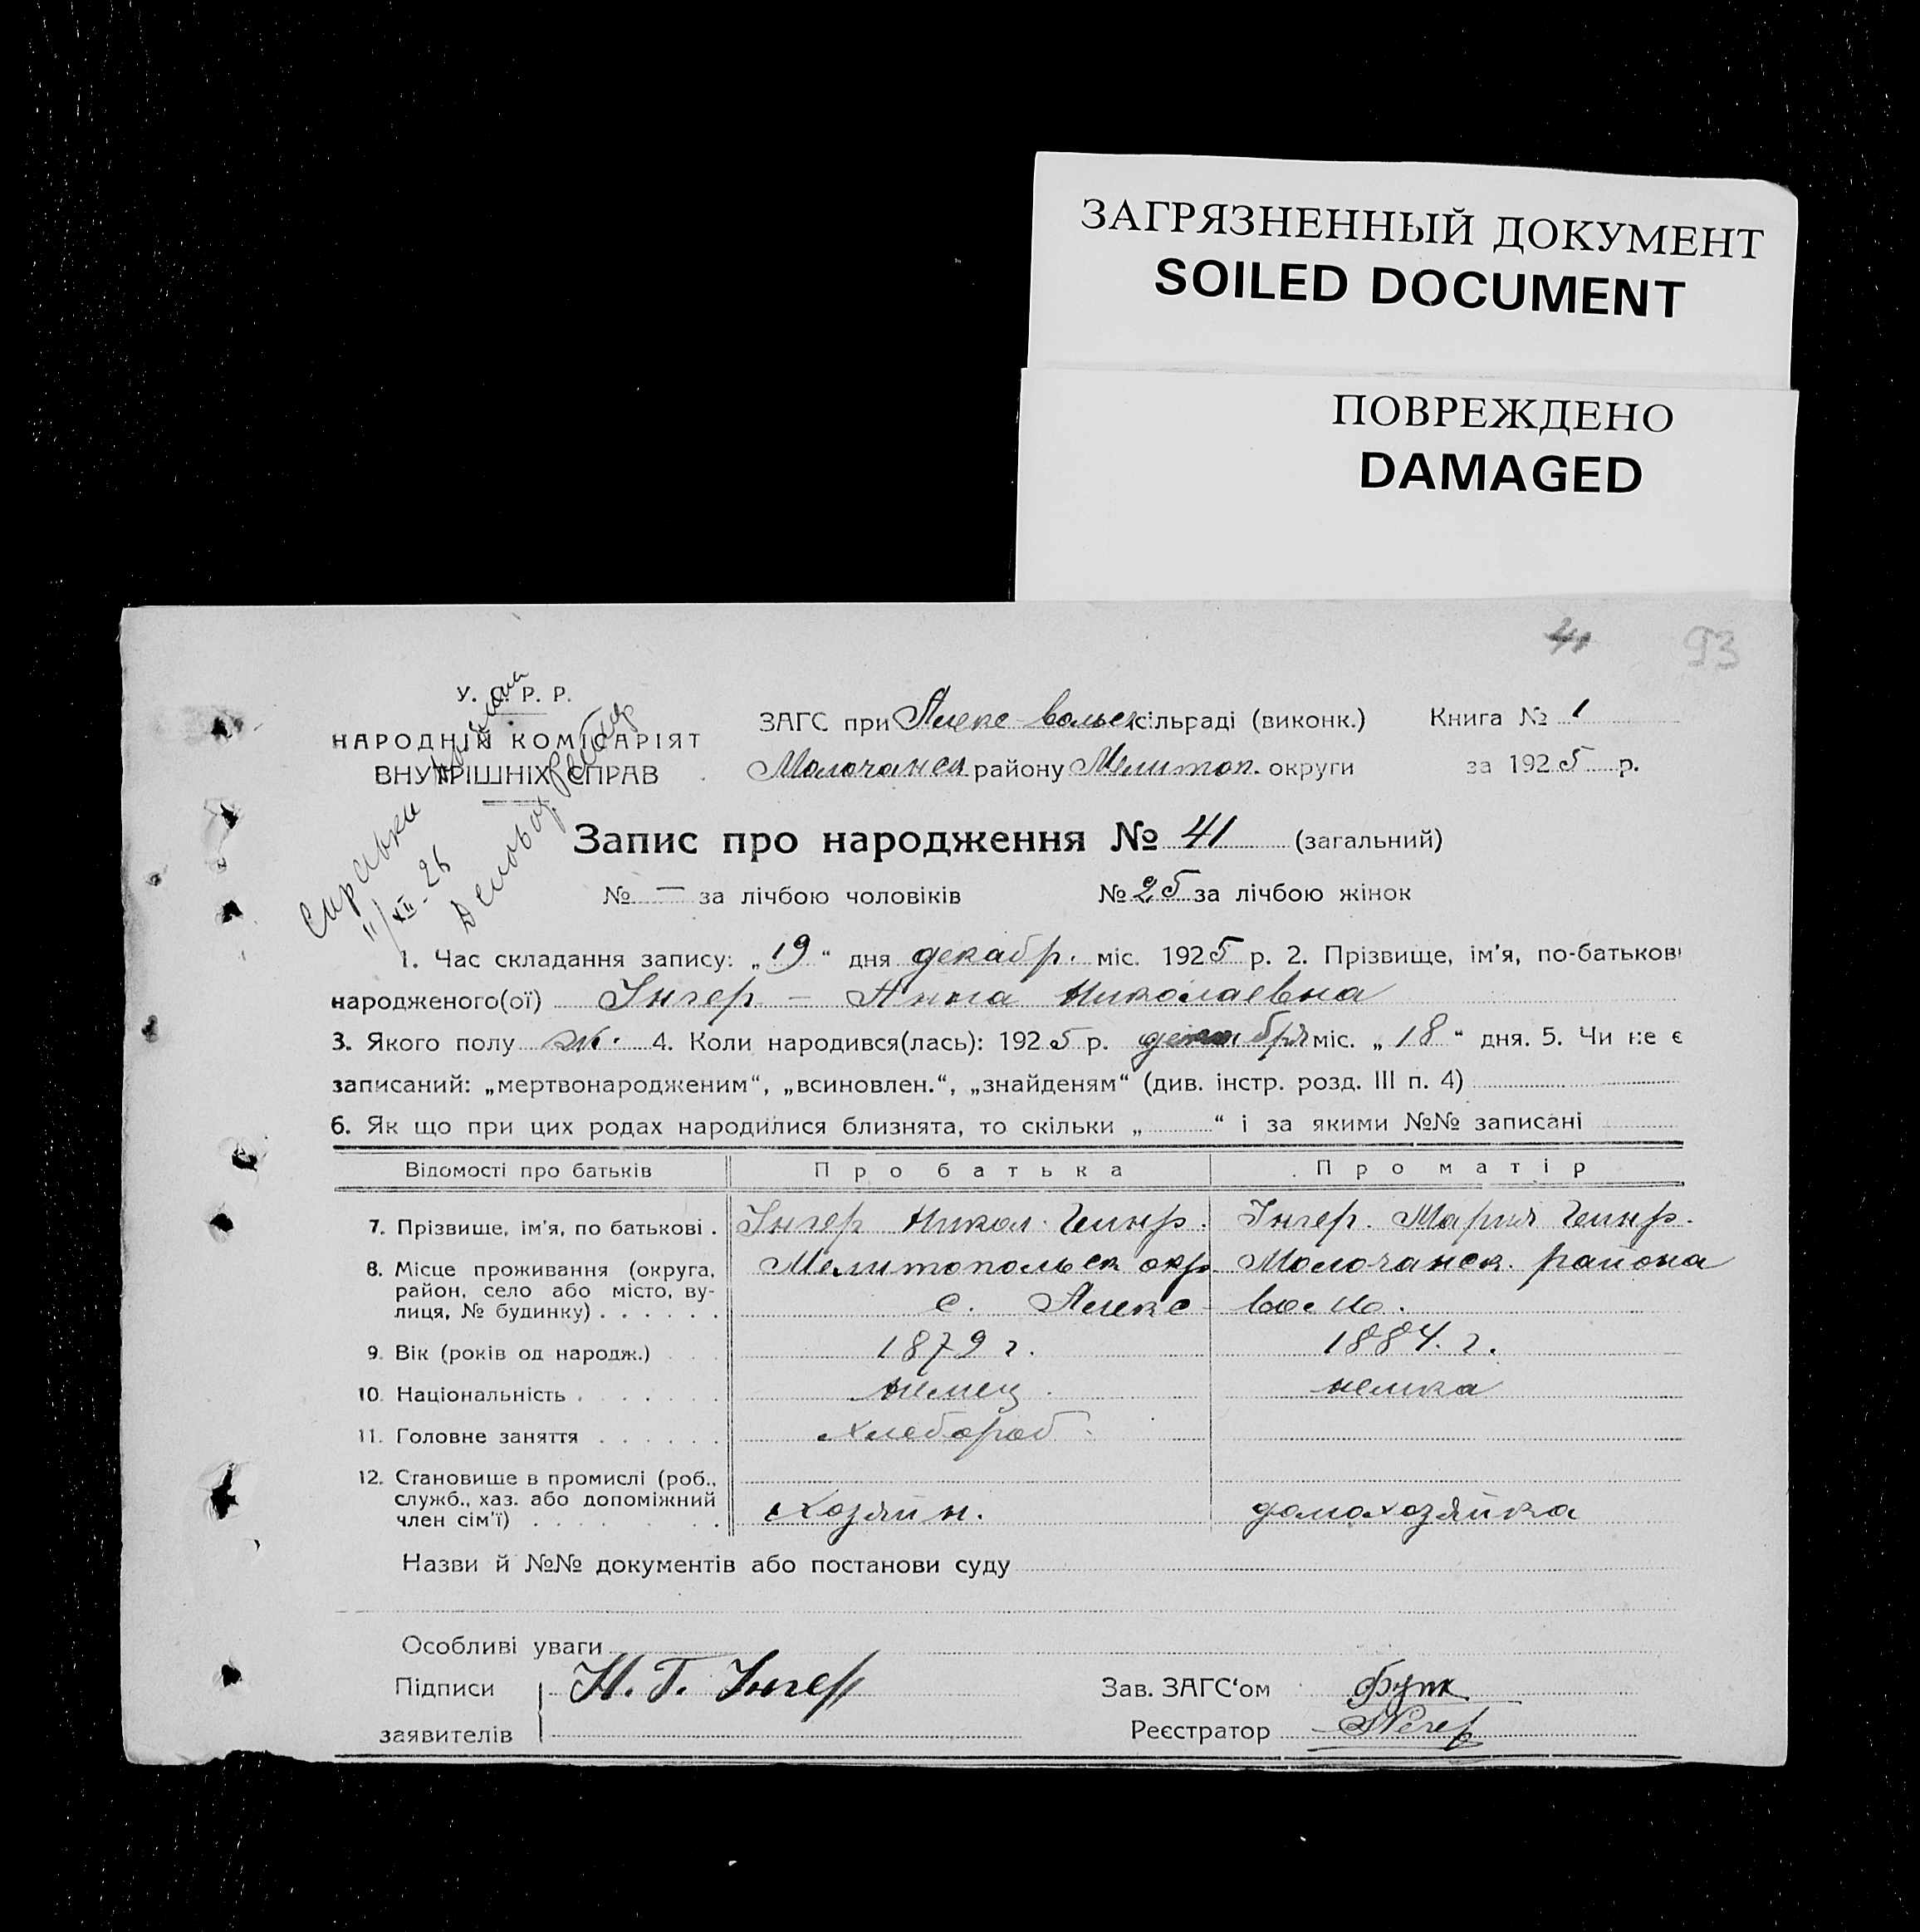 ЗАГРЯЗНЕННЫЙ ДОКУМЕНТ
SOILED DOCUMENT
ПОВРЕЖДЕНО
DAMAGED
41 93
У. С. Р. Р.
НАРОДНІЙ КОМІСАРІЯТ
ВНУТРІШНІХ СПРАВ
Справка
11/XII-26
ЗАГС при Алекс вольск сільраді (виконк.) Книга № 1
Молочанск району Мелитоп. округи за 1925 р.
Запис про народження № 41 (загальний)
№ — за лічбою чоловіків № 25 за лічбою жінок
1. Час складання запису: „19“ дня декабр. міс. 1925 р. 2. Прізвище, ім'я, по-батькові
народженого(ої) Унгер – Анна Николаевна
3. Якого полу ж. 4. Коли народився(лась): 1925 р. декабря міс. „18“ дня. 5. Чи не є
записаний: „мертвонародженим“, „всиновлен.“, „знайденям“ (див. інстр. розд. III п. 4)
6. Як що при цих родах народилися близнята, то скільки „ “ і за якими №№ записані
Відомості про батьків Про батька Про матір
7. Прізвище, ім'я, по батькові . Унгер Никол. Генр. Унгер. Мария Генр.
8. Місце проживання (округа, Мелитопольск окр. Молочанск. района
район, село або місто, ву- с. Алекс- воль.
лиця, № будинку) . . . . . .
9. Вік (років од народж.) 1879 г. 1884. г.
10. Національність . немец. немка
11. Головне заняття . . . . . . хлебороб.
12. Становище в промислі (роб.,
служб., хаз. або допоміжний хозяин. домахозяйка
член сім'ї) . . . .
Назви й №№ документів або постанови суду
Особливі уваги
Підписи Н. Г. Унгер Зав. ЗАГС‘ом
заявителів Реєстратор